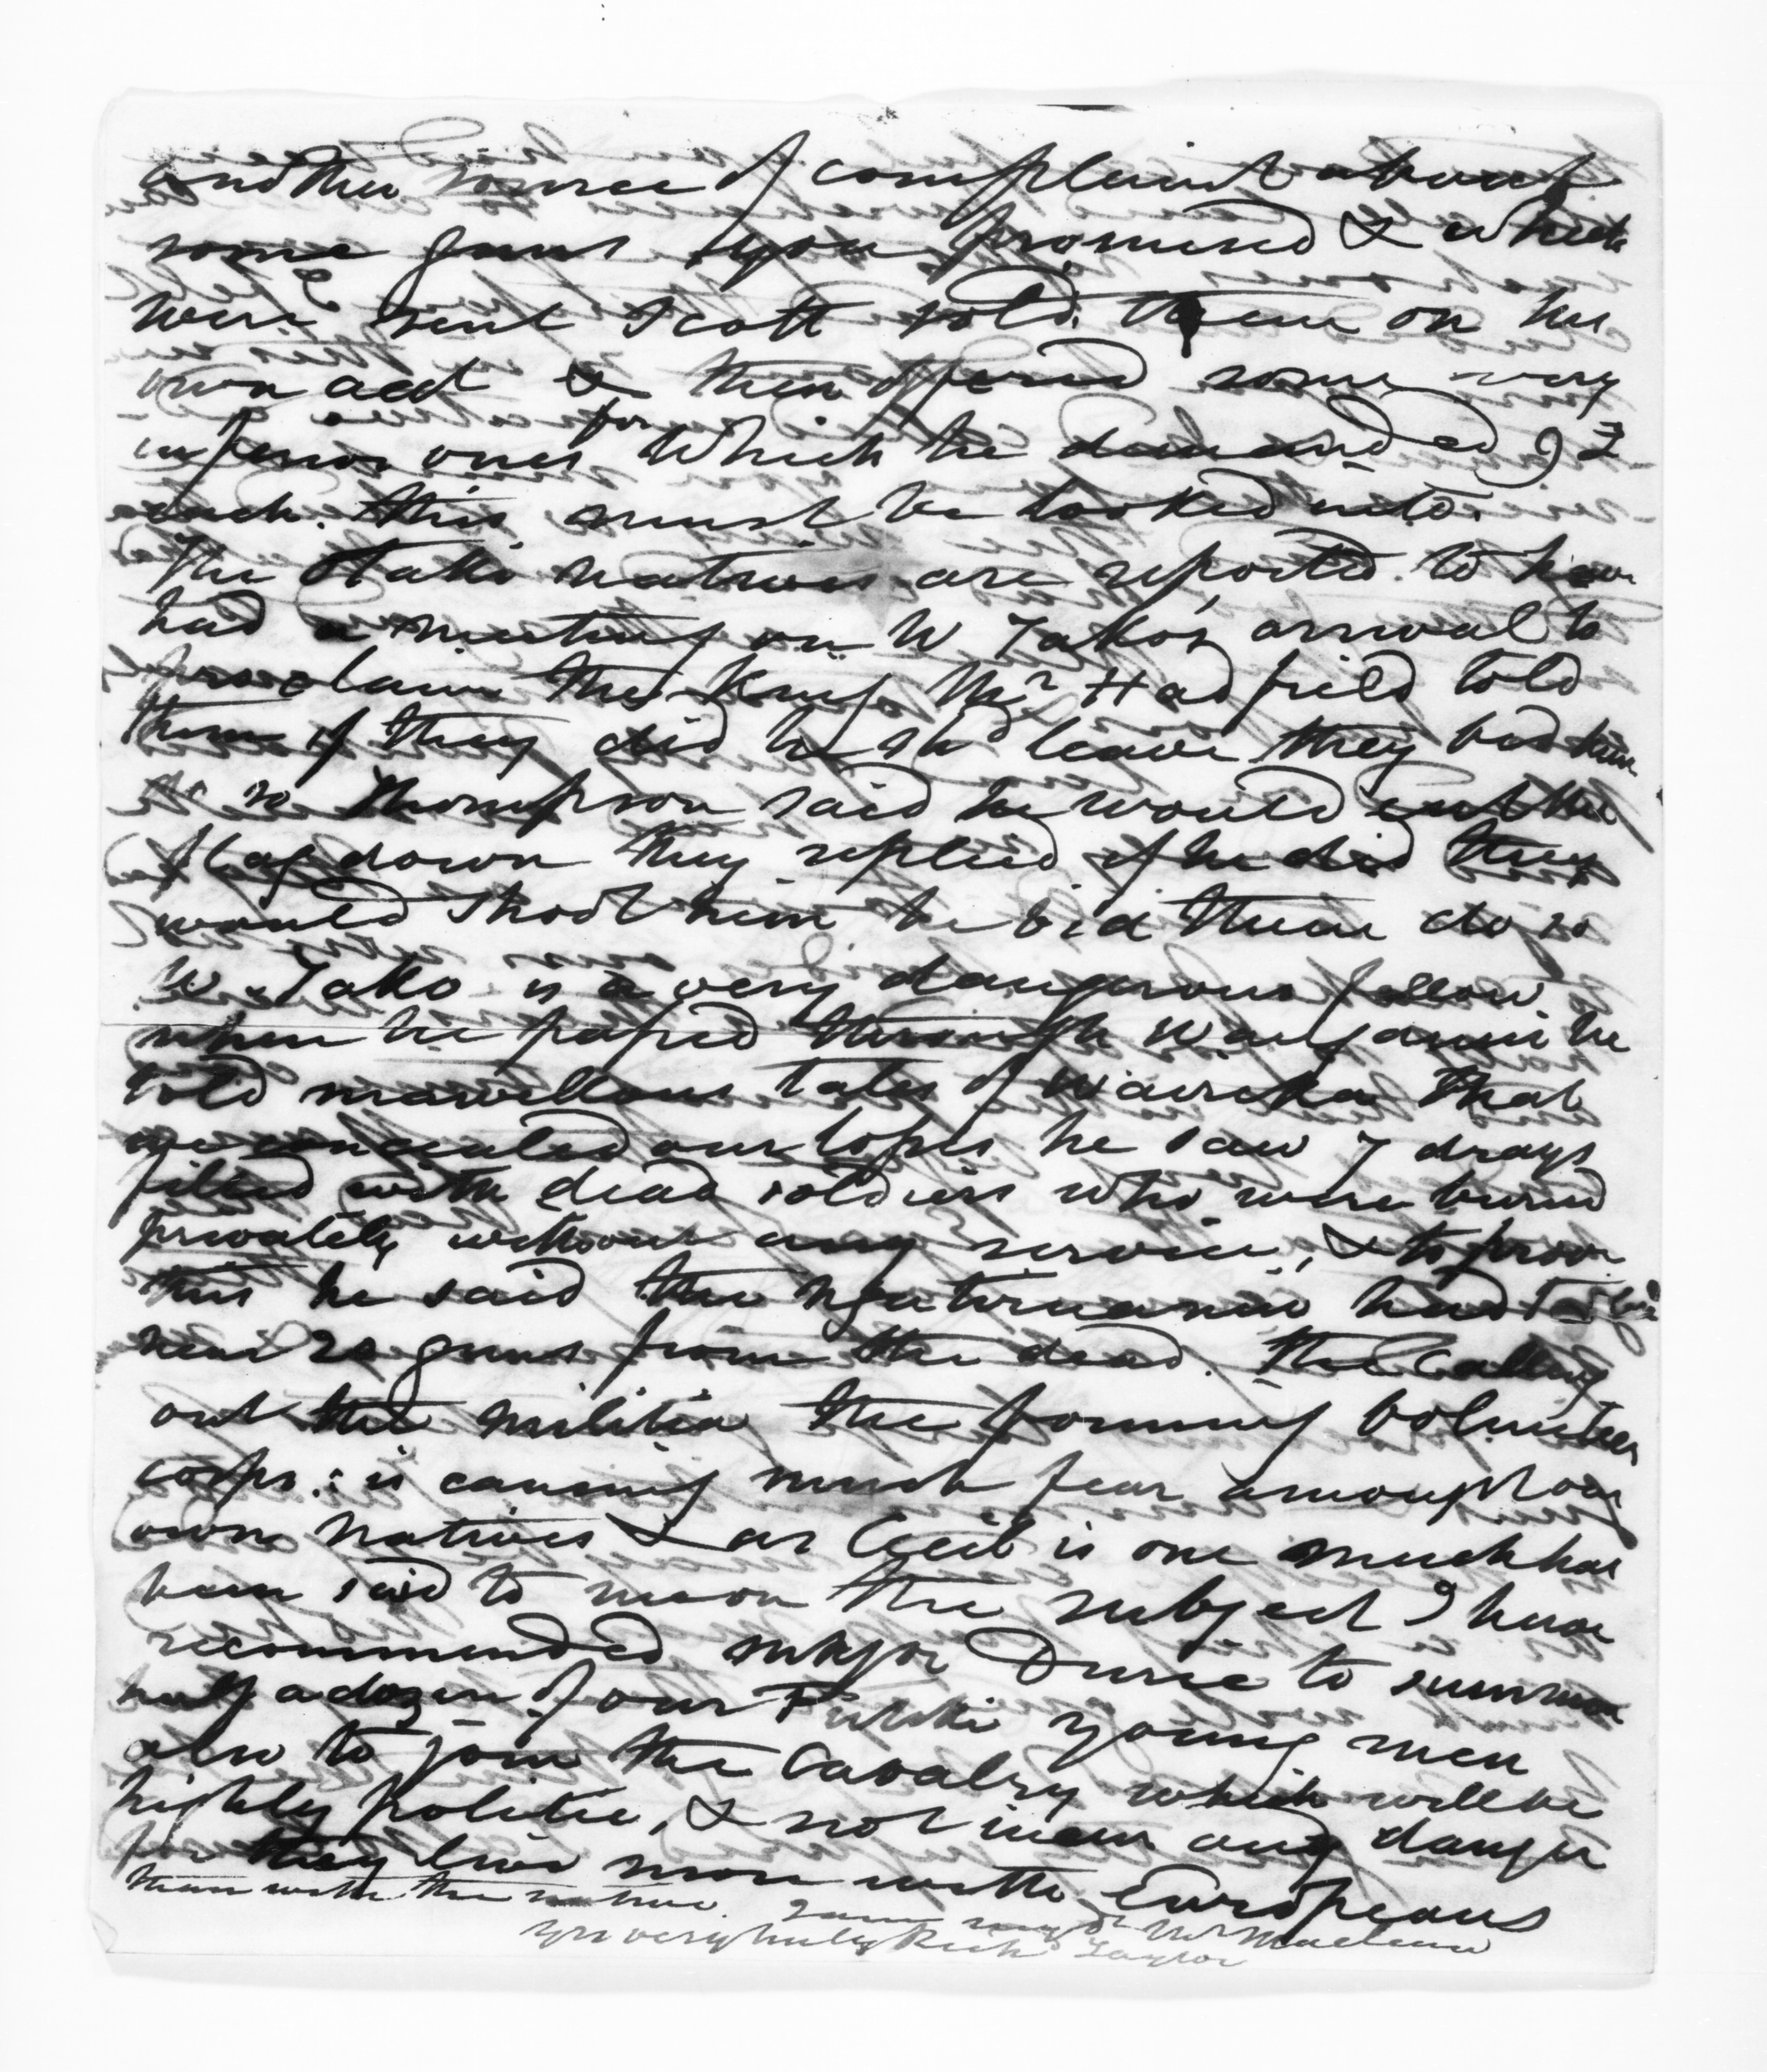 another source of complaint about
some guns you promised & which
were sent Scott sold them on his
own acct & then offered some very
inferior ones for which he demanded 9£
each. this must be looked into.
The Otaki natives are reported to have
had a meeting on W Tako's arrival to
proclaim the King Mr Hadfield told
them if they did he shd leave they bad him
so Thompson said he would cut the
flag down they replied if he did they
would shoot him he bid them do so
W. Tako is a very dangerous fellow
when he passed through Wanganui he
told marvellous tales of Waireka that
we concealed our loss he saw 7 drays
filled with dead soldiers who were buried
privately without any service, & to prove
this he said the Ngatiruanui had
near 20 guns from the dead. The calling
out the militia the forming volunteer
corps: is causing much fear amongst our
own natives & as Cecil is one much has
been said to me on the subject I have
recommended Major Durie to summon
half a dozen of our Putiki young men
also to join the Cavalry which will be
highly politic, & not incur any danger
for they live more with Europeans
than with the native. I am my dr Mr Maclean
yrs very truly Richd Taylor